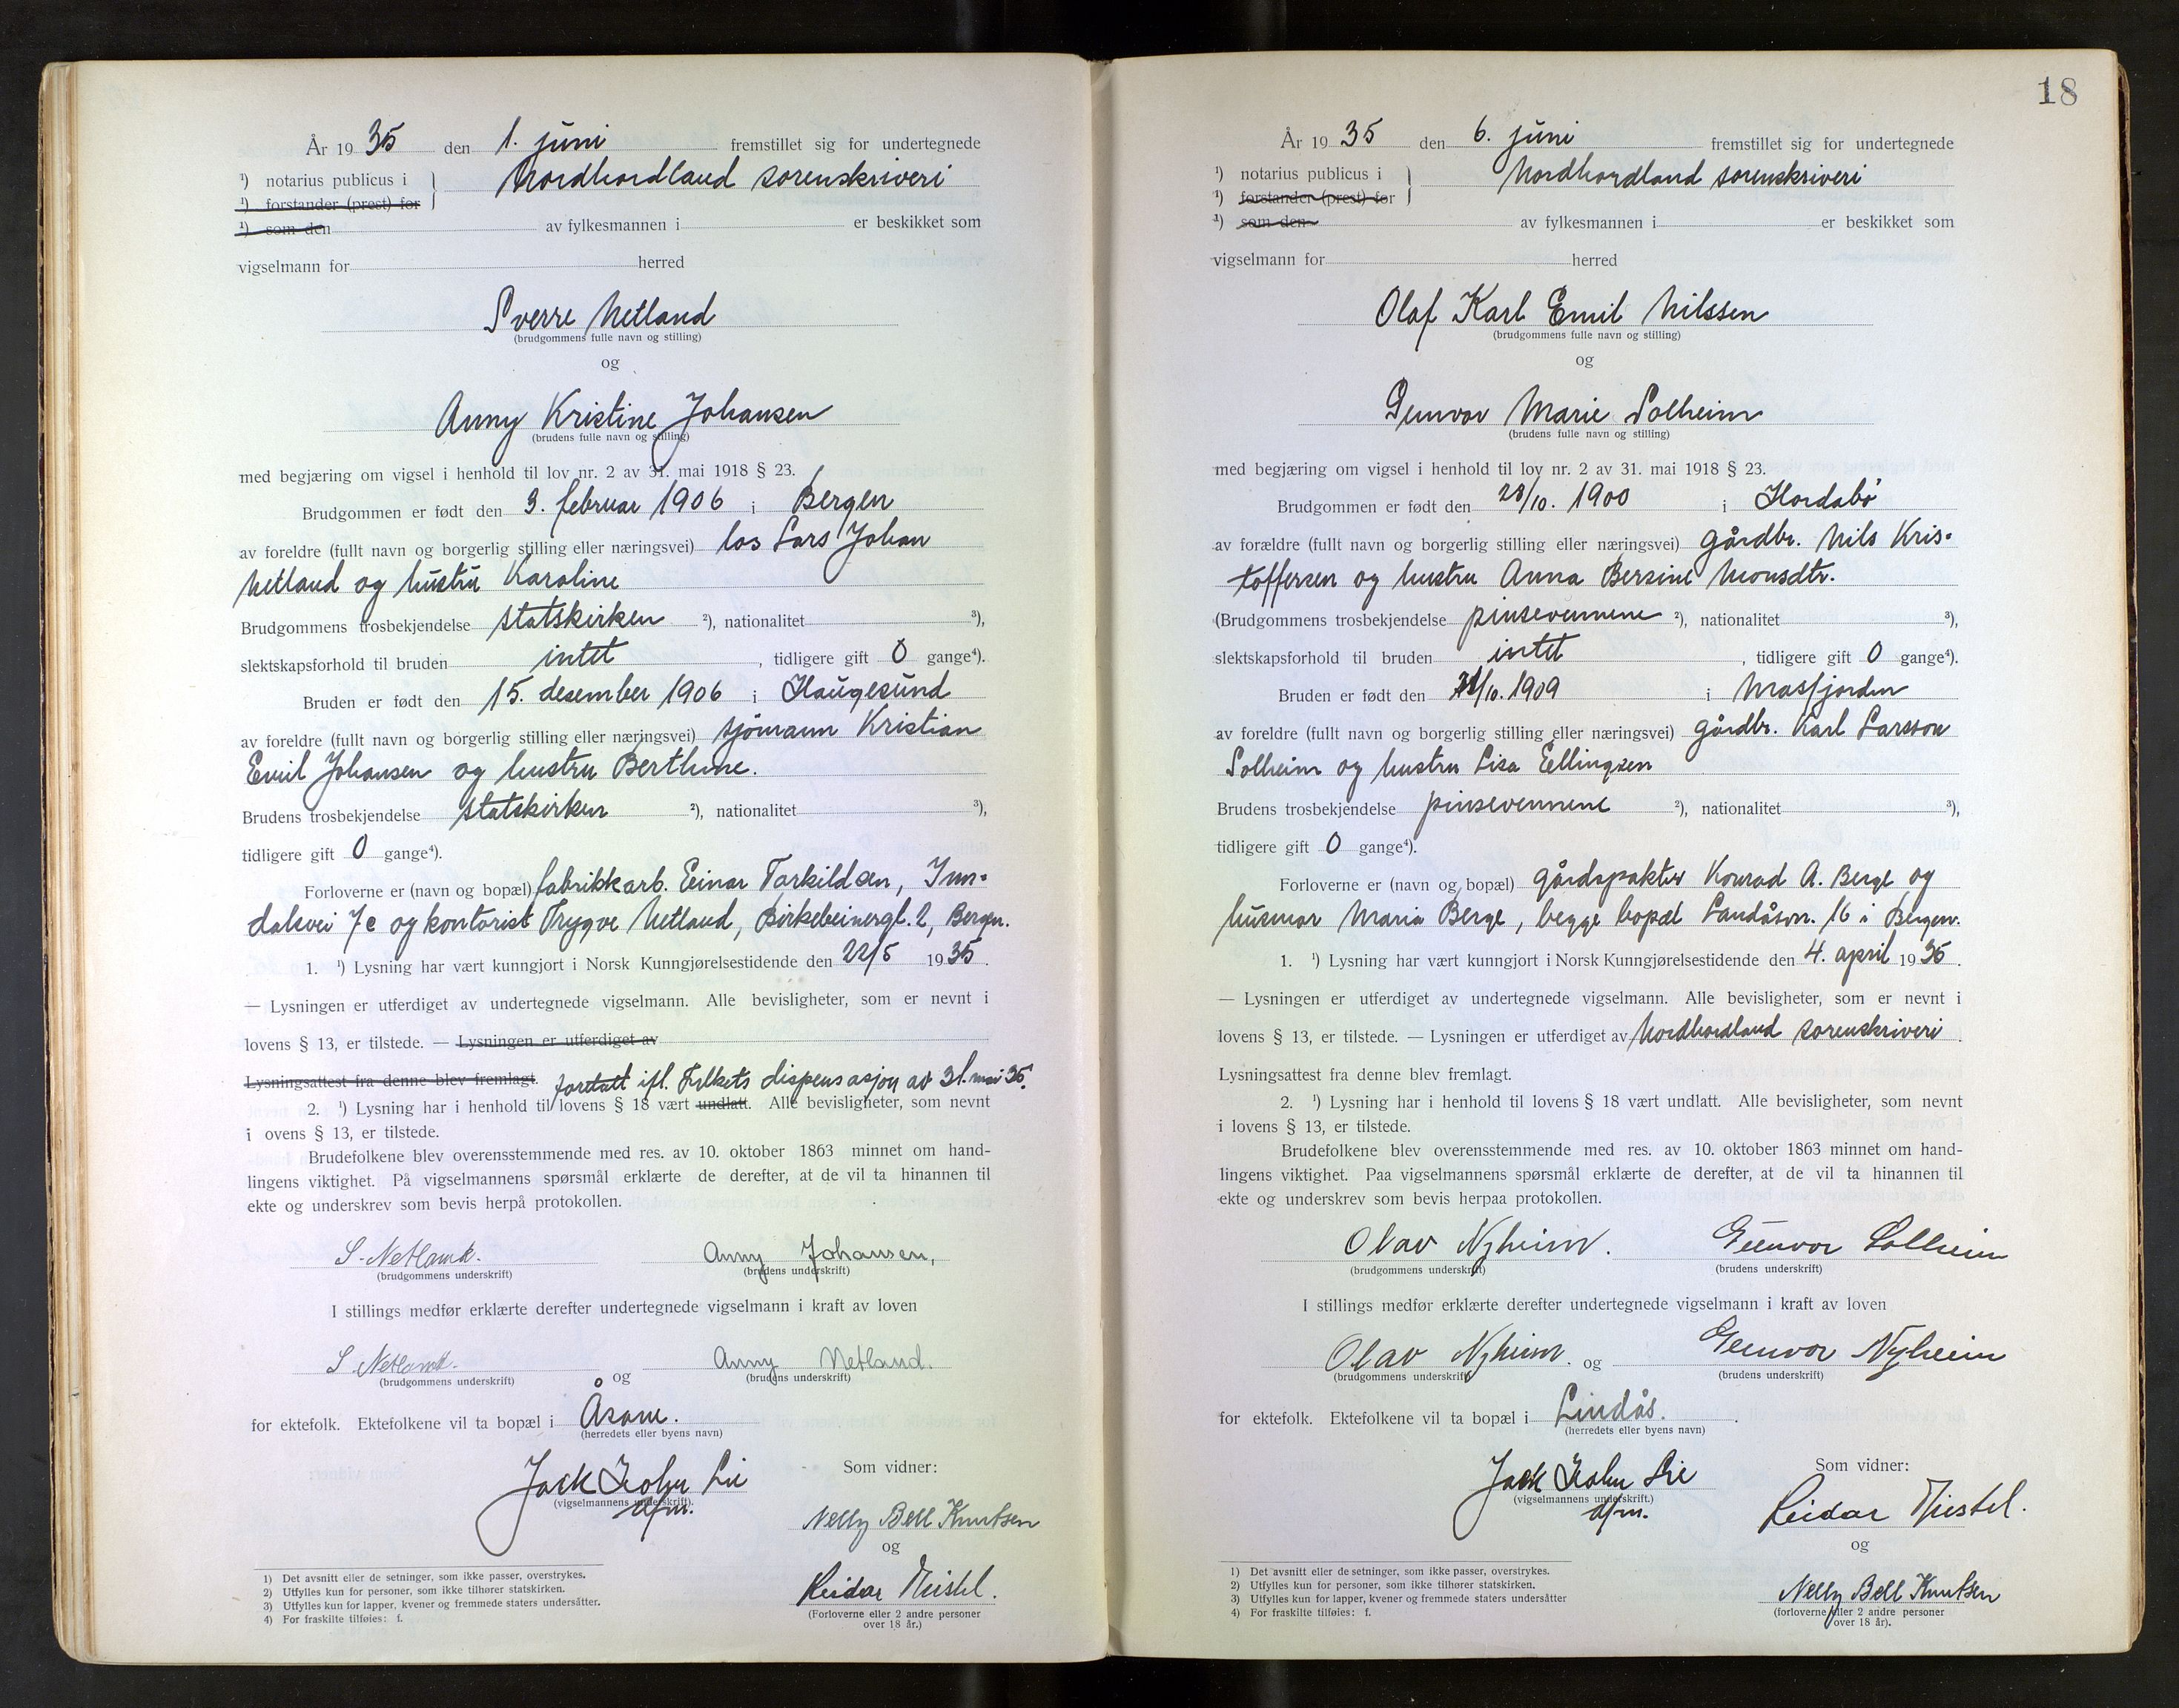 År 1935 den 1. juni fremstillet sig for undertegnede
¹) notarius publicus i } Nordhordland sorenskriveri
¹) forstander (prest) for
¹) som den av fylkesmannen i er beskikket som
vigselmann for herred
Sverre Netland
(brudgommens fulle navn og stilling)
og
Anny Kristine Johansen
(brudens fulle navn og stilling)
med begjæring om vigsel i henhold til lov nr. 2 av 31. mai 1918 § 23.
Brudgommen er født den 3. februar 1906 i Bergen
av foreldre (fullt navn og borgerlig stilling eller næringsvei) los Lars Johan
Netland og hustru Karoline
Brudgommens trosbekjendelse statskirken ²), nationalitet ³),
slektskapsforhold til bruden intet, tidligere gift 0 gange⁴).
Bruden er født den 15. desember 1906 i Haugesund
av foreldre (fullt navn og borgerlig stilling eller næringsvei) sjømann Kristian
Emil Johansen og hustru Berthine.
Brudens trosbekjendelse statskirken ²), nationalitet ³),
tidligere gift 0 gange⁴).
Forloverne er (navn og bopæl) fabrikkarb. Einar Torkildsen, Inn-
dalsvei 7e og kontorist Trygve Netland, Birkebeinergt. 2, Bergen.
1. ¹) Lysning har vært kunngjort i Norsk Kunngjørelsestidende den 22/5 1935.
— Lysningen er utferdiget av undertegnede vigselmann. Alle bevisligheter, som er nevnt i
lovens § 13, er tilstede. — Lysningen er utferdiget av
Lysningsattest fra denne blev fremlagt. fortatt ifl. Fylkets dispensasjon av 31. mai 35.
2. ¹) Lysning har i henhold til lovens § 18 vært undlatt. Alle bevisligheter, som nevnt
i ovens § 13, er tilstede.
Brudefolkene blev overensstemmende med res. av 10. oktober 1863 minnet om hand-
lingens viktighet. På vigselmannens spørsmål erklærte de derefter, at de vil ta hinannen til
ekte og underskrev som bevis herpå protokollen.
S. Netland. Anny Johansen,
(brudgommens underskrift) (brudens underskrift)
I stillings medfør erklærte derefter undertegnede vigselmann i kraft av loven
S. Netland. og Anny Netland.
(brudgommens underskrift) (brudens underskrift)
for ektefolk. Ektefolkene vil ta bopæl i Åsane.
(herredets eller byens navn)
Jack John Lie
(vigselmannens underskrift).
d/m.
Som vidner:
Nelly Bell Knutsen
og
Reidar
(Forloverne eller 2 andre personer
over 18 år.)
1) Det avsnitt eller de setninger, som ikke passer, overstrykes.
2) Utfylles kun for personer, som ikke tilhører statskirken.
3) Utfylles kun for lapper, kvener og fremmede staters undersåtter.
4) For fraskilte tilføies: f.
18
År 1935 den 6. juni fremstillet sig for undertegnede
¹) notarius publicus i } Nordhordland sorenskriveri
¹) forstander (prest) for
¹) som den av fylkesmannen i er beskikket som
vigselmann for herred
Olaf Karl Emil Nilssen
(brudgommens fulle navn og stilling)
og
Gunvor Marie Solheim
(brudens fulle navn og stilling)
med begjæring om vigsel i henhold til lov nr. 2 av 31. mai 1918 § 23.
Brudgommen er født den 28/10. 1900 i Hordabø
av forældre (fullt navn og borgerlig stilling eller næringsvei) gårdbr. Nils Kris-
toffersen og hustru Anna Bersine Monsdtr.
(Brudgommens trosbekjendelse pinsevennene ²), nationalitet ³),
slektskapsforhold til bruden intet, tidligere gift 0 gange⁴).
Bruden er født den /10. 1909 i Masfjorden
av foreldre (fullt navn og borgerlig stilling eller næringsvei) gårdbr. Karl Larsson
Solheim og hustru Lisa Ellingsen
Brudens trosbekjendelse pinsevennene ²), nationalitet ³),
tidligere gift 0 gange⁴).
Forloverne er (navn og bopæl) gårdspakter Konrad A. Berge og
husmor Maria Berge, begge bopæl Landåsvn. 16 i Bergen.
1. ¹) Lysning har vært kunngjort i Norsk Kunngjørelsestidende den 4. april 1935.
— Lysningen er utferdiget av undertegnede vigselmann. Alle bevisligheter, som er nevnt i
lovens § 13, er tilstede. — Lysningen er utferdiget av Nordhordland sorenskriveri.
Lysningsattest fra denne blev fremlagt.
2. ¹) Lysning har i henhold til lovens § 18 vært undlatt. Alle bevisligheter, som nevnt
i lovens § 13, er tilstede.
Brudefolkene blev overensstemmende med res. av 10. oktober 1863 minnet om hand-
lingens viktighet. Paa vigselmannens spørsmål erklærte de derefter, at de vil ta hinannen til
ekte og underskrev som bevis herpaa protokollen.
Olav Nyheim. Gunvor Solheim
(brudgommens underskrift) (brudens underskrift)
I stillings medfør erklærte derefter undertegnede vigselmann i kraft av loven
Olav Nyheim. og Gunvor Nyheim
(brudgommens underskrift) (brudens underskrift)
for ektefolk. Ektefolkene vil ta bopæl i Lindås.
(herredets eller byens navn)
Jack John Lie
(vigselmannens underskrift.)
d/m.
Som vidner:
Reidar
og
Nelly Bell Knutsen
(forloverne eller 2 andre personer
over 18 år).
1) Det avsnitt eller de setninger, som ikke passer, overstrykes.
2) Utfylles kun for personer, som ikke tilhører statskirken.
3) Utfylles kun for lapper, kvener og fremmede staters undersåtter
4) For fraskilte tilføies: f.